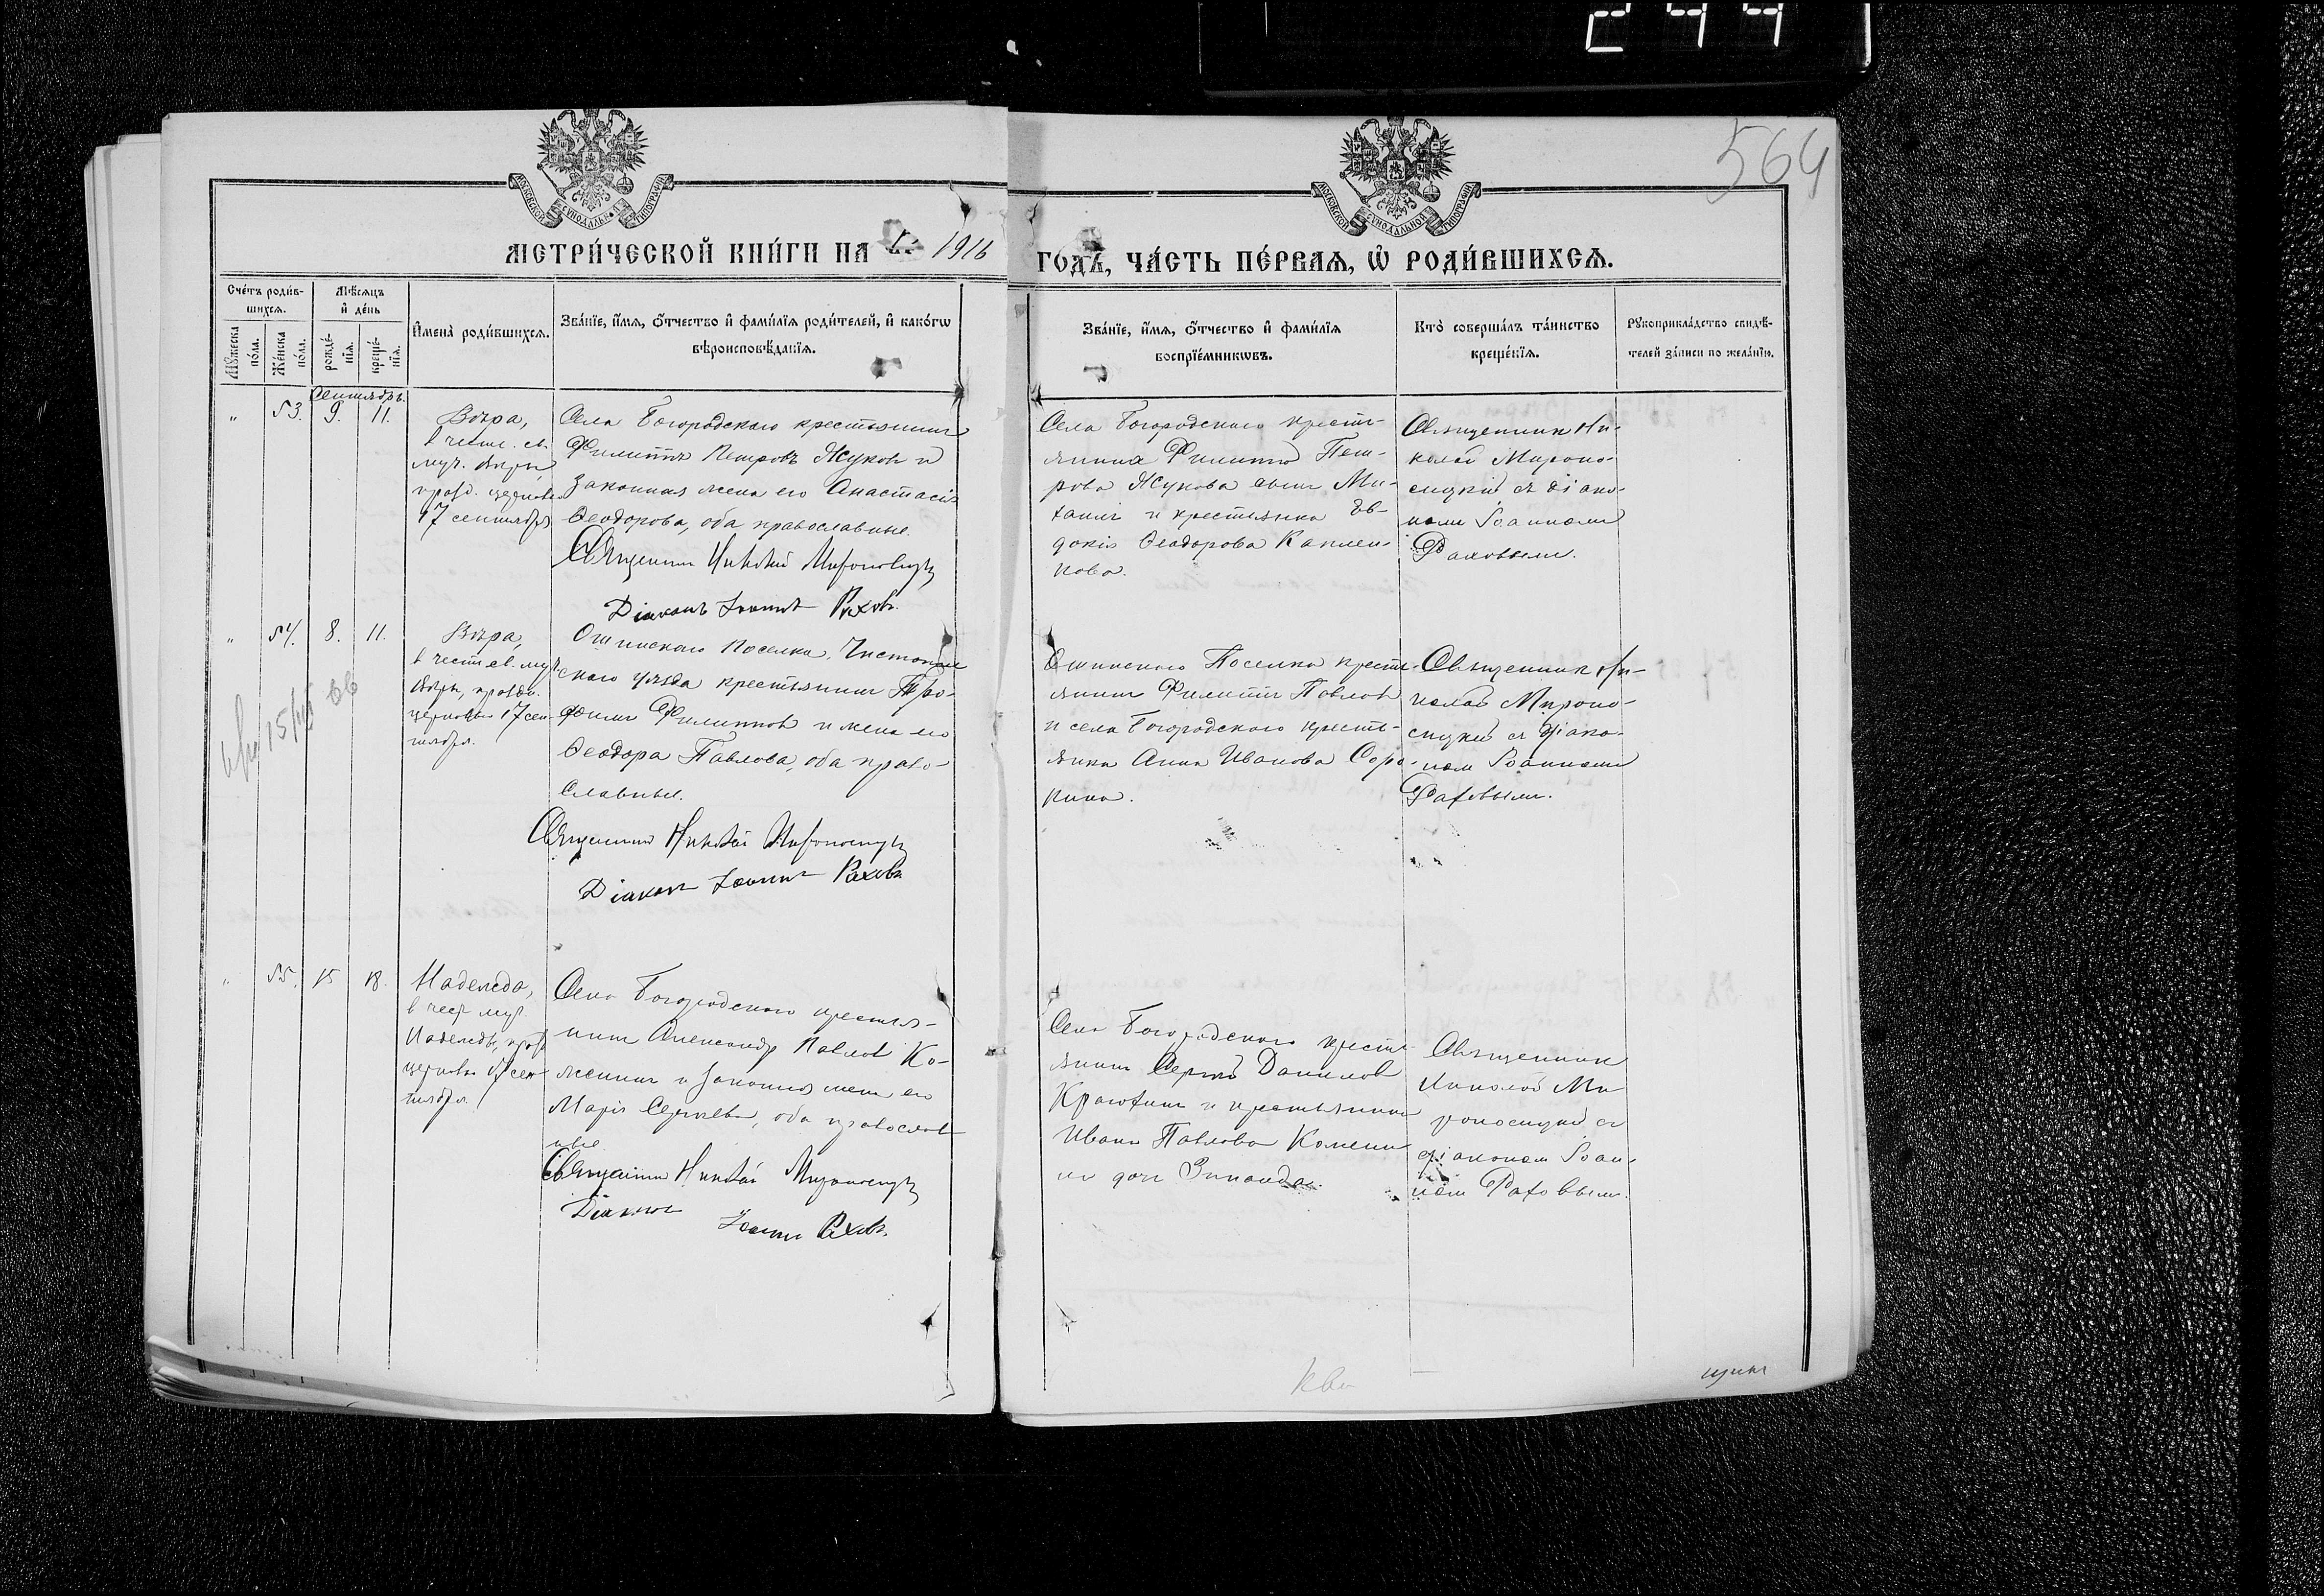 244
564
МОСКОВСКОЙ СѴНОДАЛЬНОЙ ТИПОГРАФІИ
МОСКОВСКОЙ СѴНОДАЛЬНОЙ ТИПОГРАФІИ
МЕТРИ́ЧЕСКОЙ КНИ́ГИ НА 1916
ГОДЪ, ЧА́СТЬ ПЕ́РВАЯ, Ѡ҆ РОДИ́ВШИХСЯ.
Сче́тъ роди́в-
шихся.
Мꙋжеска по́ла.
Же́нска по́ла.
Мѣ́сяцъ
и҆ де́нь
рожде́-
нїя.
креще́-
нїя.
И҆мена̀ роди́вшихся.
Зва́нїе, и҆́мя, о҆́тчество и҆ фами́лїя роди́телей, и҆ како́гѡ
вѣроисповѣ́данїя.
Зва́нїе, и҆́мя, о҆́тчество и҆ фами́лїя
воспрїе́мникѡвъ.
Кто̀ соверша́лъ та́инство
креще́нїя.
Рꙋкоприкла́дство свидѣ́-
телей за́писи по жела́нїю.
Сентябрь.
" 53. 9. 11.
Вѣра,
в честь св.
муч. Вѣры,
празд. церковью
17 сентября
Села Богородскаго крестьянинъ
Филиппъ Петровъ Жуковъ и
законная жена его Анастасія
Ѳеодорова, оба православные.
Священникъ Николай Мироносицкій
Діаконъ Іоаннъ Раховъ.
Села Богородскаго кресть-
янина Филиппа Пет-
рова Жукова сынъ Ми-
хаилъ и крестьянка Ев-
докія Ѳеодорова Каплен-
кова.
Священникъ Ни-
колай Мироно-
сицкій съ діако-
номъ Іоанномъ
Раховымъ.
" 54. 8. 11.
Вѣра,
в честь св. муч.
Вѣры, праздн.
церковью 17 сен-
тября.
поселка, Чистополь-
скаго уѣзда крестьянинъ Тро-
фимъ Филипповъ и жена его
Ѳеодора Павлова, оба право-
славные.
Священникъ Николай Мироносицкій
Діаконъ Іоаннъ Раховъ.
Поселка кресть-
янинъ Филиппъ Павловъ
и села Богородскаго кресть-
янка Анна Иванова Соро-
кина.
Священникъ Ни-
колай Мироно-
сицкій съ діако-
номъ Іоанномъ
Раховымъ.
15/III 66
" 55. 15 18.
Надежда,
в честь муч.
Надежды, празд.
церковью 17 сен-
тября.
Села Богородскаго крестья-
нинъ Александръ Павловъ Ко-
и законная жена его
Марія Сергѣева, оба православ-
ные
Священникъ Николай Мироносицкій
Діаконъ Іоаннъ Раховъ.
Села Богородскаго кресть-
янинъ Сергѣй Даниловъ
и крестьянина
Ивана Павлова
дочь Зинаида.
Священникъ
Николай Ми-
роносицкій съ
діакономъ Іоан-
номъ Раховымъ.